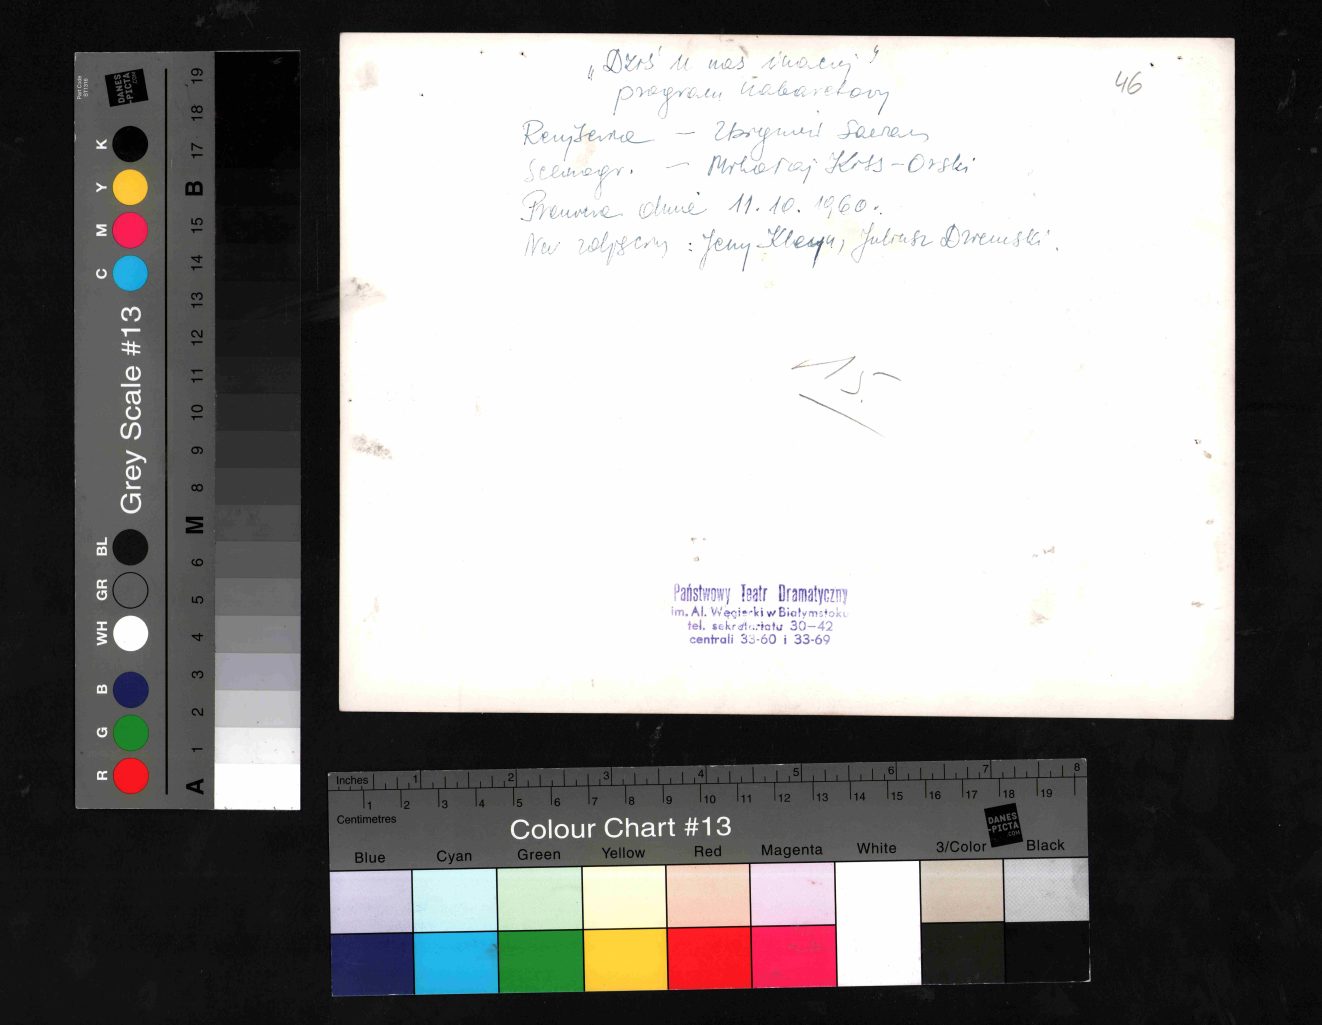 „Dziś u nas inaczej”
program kabaretowy
46
Reżyseria – Zbigniew
Scenogr. – Mikołaj Koss-Orski
Premiera dnia 11.10.1960.
Na zdjęciu: Jerzy Kleyn, Juliusz Dziemski.
15
Państwowy Teatr Dramatyczny
im. Al. Węgierki w Białymstoku
tel. sekretariatu 30–42
centrali 33-60 i 33-69
Part Code
ST1316
DANES
-PICTA
.COM
Grey Scale #13
K
Y
M
C
BL
GR
WH
B
G
R
19
18
17
B
15
14
13
12
11
10
9
8
M
6
5
4
3
2
1
A
Inches 1 2 3 4 5 6 7 8
Centimetres 1 2 3 4 5 6 7 8 9 10 11 12 13 14 15 16 17 18 19
Colour Chart #13
DANES
-PICTA
.COM
Blue Cyan Green Yellow Red Magenta White 3/Color Black